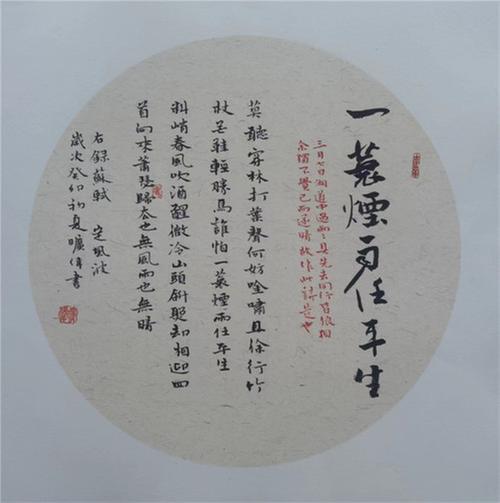 一蓑煙雨任平生
三月七日湖道中遇雨具先去同行皆狼
余獨不覺已而遂晴故作此詩是也
莫聽穿林打葉聲何妨唫嘯且徐行竹
杖芒鞋輕勝馬誰怕一蓑煙雨任平生
料峭春風吹酒醒微冷山頭斜照却相迎回
首向來蕭瑟歸去也無風雨也無晴
右錄蘇軾 定風波
歲次癸卯初夏曠偉書